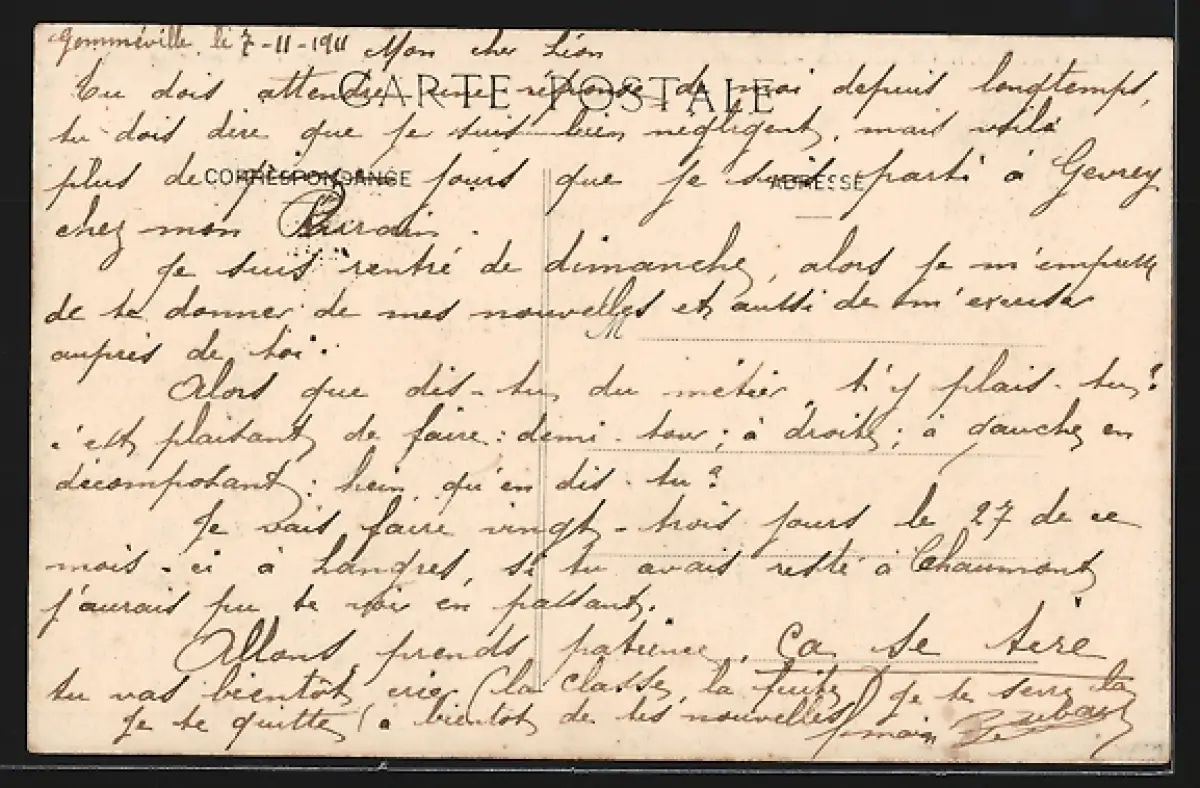 Gomméville, le 7-11-1911 Mon cher Léon
CARTE POSTALE
Tu dois attendre une réponse de moi depuis longtemps,
tu dois dire que je suis bien négligent, mais voilà
CORRESPONDANCE
ADRESSE
plus de jours que je suis parti à Gevrey
chez mon Parrain.
Je suis rentré de dimanche, alors je m'empresse
de te donner de mes nouvelles et aussi de m'excuser
M
auprès de toi.
Alors que dis-tu du métier, t'y plais-tu?
c'est plaisant de faire: demi-tour; à droite; à gauche en
décomposant; hein, qu'en dis-tu?
Je vais faire vingt-trois jours le 27 de ce
mois-ci à Langres, si tu avais resté à Chaumont
j'aurais pu te voir en passant.
Allons, prends patience, ça se tire
tu vas bientôt crier (la classe, la fuite) je te serre la
Je te quitte (à bientôt de tes nouvelles) main